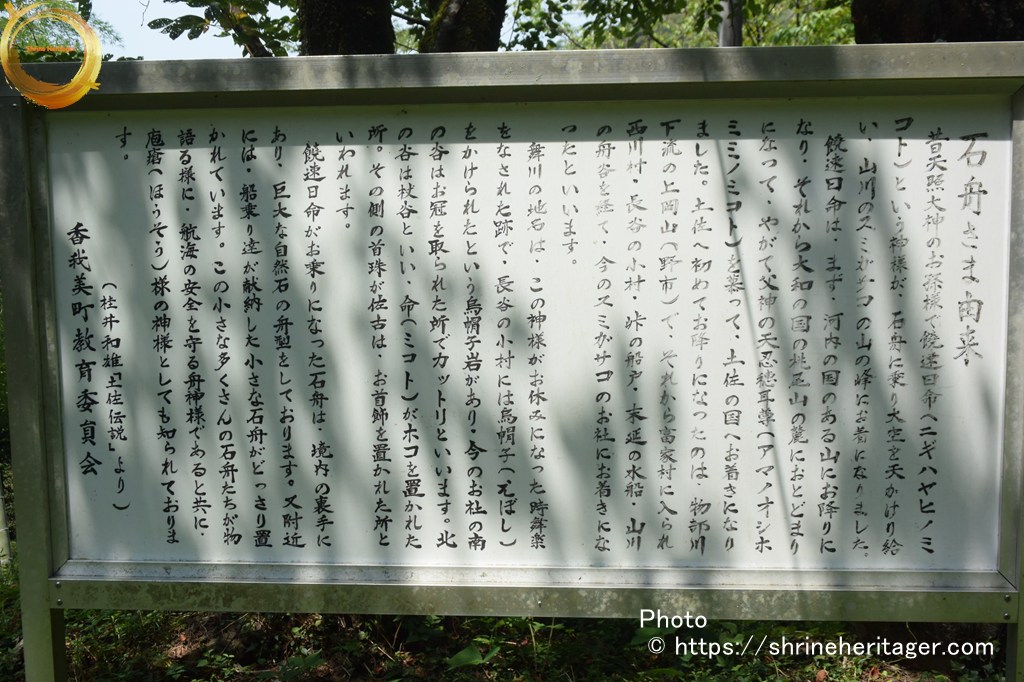 石舟さま由来
昔天照大神のお孫様で饒速日命(ニギハヤヒノミ
コト)という神様が、石舟に乗り大空を天かけり給
い、山川のスミガサコの山の峰にお着になりました。
饒速日命は、まず、河内の国のある山にお降りに
なり、それから大和の国の桃尾山の麓におとどまり
になって、やがて父神の天忍穂耳尊(アマノオシホ
ミミノミコト)を慕って、土佐の国へお着きになり
ました。土佐へ初めてお降りになったのは、物部川
下流の上岡山(野市)で、それから富家村に入られ
西川村・長谷の小村・峠の船戸・末延の水船・山川
の舟谷を経て、今のスミガサコのお社にお着きにな
ったといいます。
舞川の地名は、この神様がお休みになった時舞楽
をなされた跡で、長谷の小村には烏帽子(えぼし)
をかけられたという烏帽子岩があり、今のお社の南
の谷はお冠を取られた所でカットリといいます。北
の谷は杖谷といい、命(ミコト)がホコを置かれた
所。その側の首珠が佐古は、お首飾を置かれた所と
いわれます。
饒速日命がお乗りになった石舟は、境内の裏手に
あり、巨大な自然石の舟型をしております。又附近
には、船乗り達が献納した小さな石舟がどっさり置
かれています。この小さな多くさんの石舟たちが物
語る様に、航海の安全を守る舟神様であると共に、
庖瘡(ほうそう)様の神様としても知られておりま
す。
(桂井和雄「土佐伝説」より)
香我美町教育委員会
Shrine Heritager
Photo
© https://shrineheritager.com/